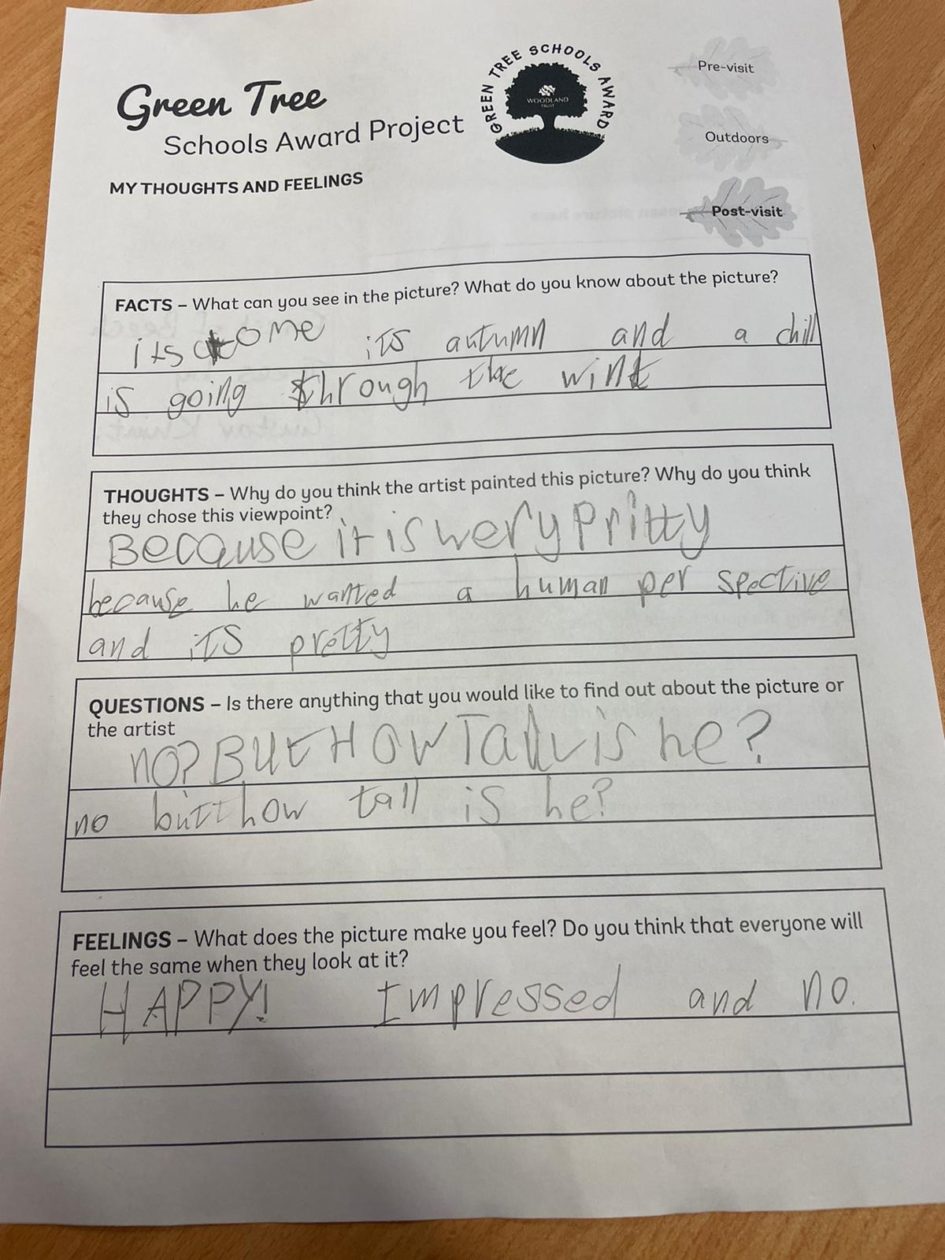 Green Tree
Schools Award Project
MY THOUGHTS AND FEELINGS
GREEN TREE SCHOOLS AWARD
WOODLAND
TRUST
Pre-visit
Outdoors
Post-visit
FACTS – What can you see in the picture? What do you know about the picture?
its ome its autumn and a chill
is going through the wint
THOUGHTS – Why do you think the artist painted this picture? Why do you think
they chose this viewpoint?
Because it is wery pritty
because he wanted a human per spective
and its pretty
QUESTIONS – Is there anything that you would like to find out about the picture or
the artist
no? But How Tall is he?
no butt how tall is he?
FEELINGS – What does the picture make you feel? Do you think that everyone will
feel the same when they look at it?
HAPPY! Impressed and no.